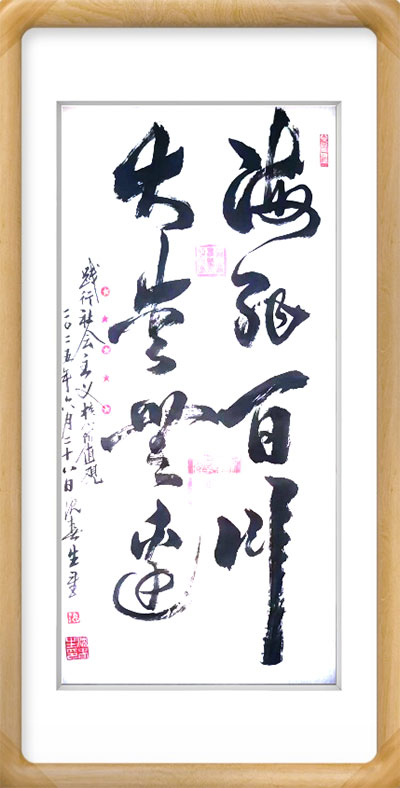 海纳百川
大爱無边
践行社会主义核心价值观
二〇二五年六月二十八日 春生书